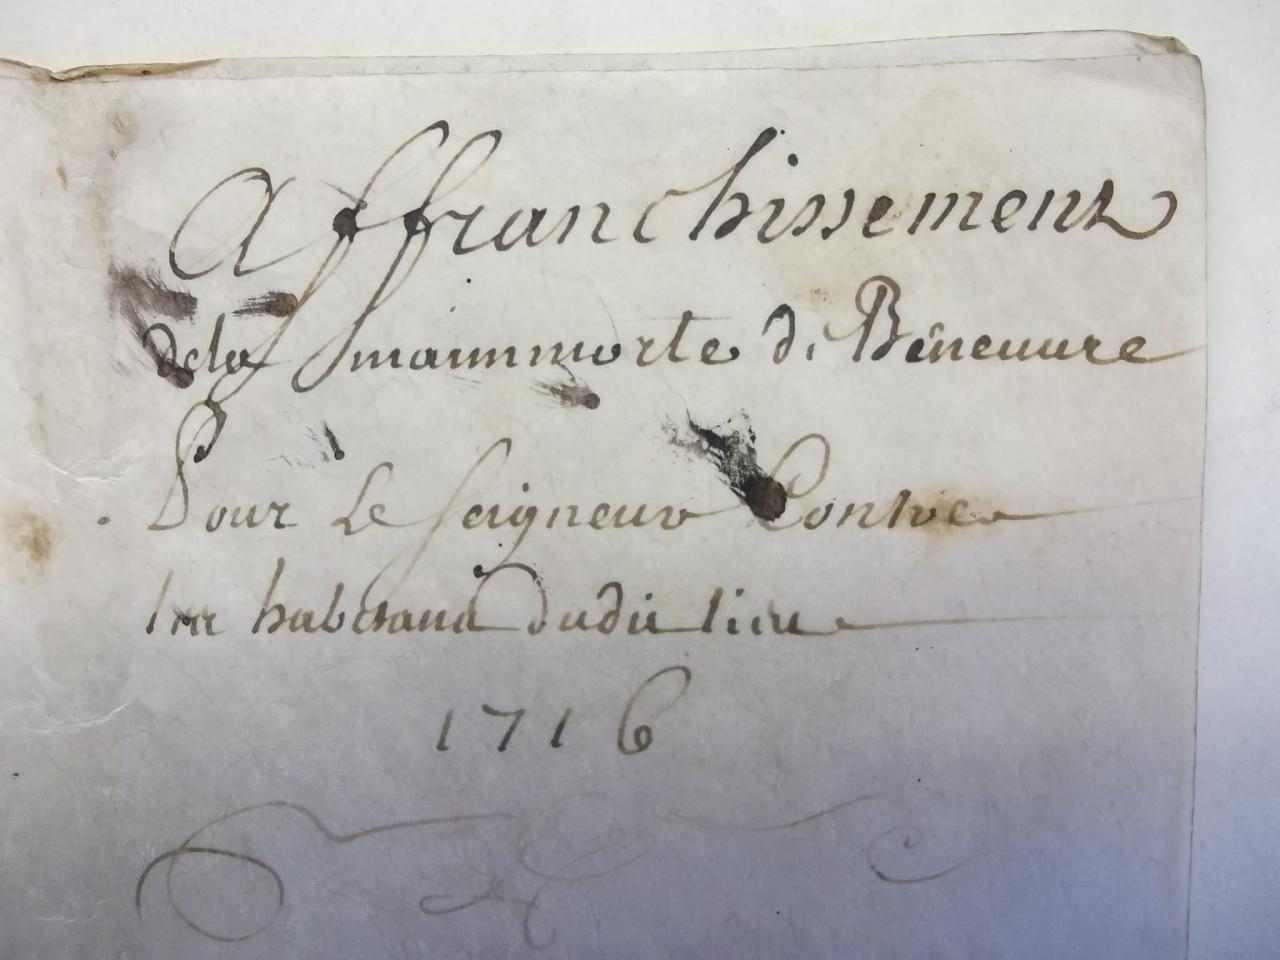 Affranchissement
dela mainmorte de Beneuure
Pour Le Seigneur Contre
les habitans dudit lieu
1716